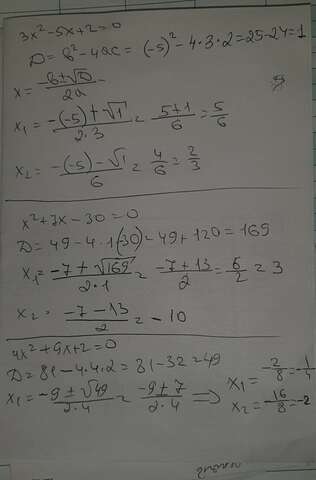 3x²-5x+2=0
D=b²-4ac=(-5)²-4·3·2=25-24=1
x=\frac{-b±√D}{2a}
x₁=\frac{-(-5)+√1}{2·3}=\frac{5+1}{6}=\frac{5}{6}
x₂=\frac{-(-5)-√1}{6}=\frac{4}{6}=\frac{2}{3}
x²+7x-30=0
D=49-4·1(-30)=49+120=169
x₁=\frac{-7+√169}{2·1}=\frac{-7+13}{2}=\frac{6}{2}=3
x₂=\frac{-7-13}{2}=-10
4x²+9x+2=0
D=81-4·4·2=81-32=49
x₁=\frac{-9±√49}{2·4}=\frac{-9±7}{2·4}⇒
x₁=-\frac{2}{8}=-\frac{1}{4}
x₂=-\frac{16}{8}=-2